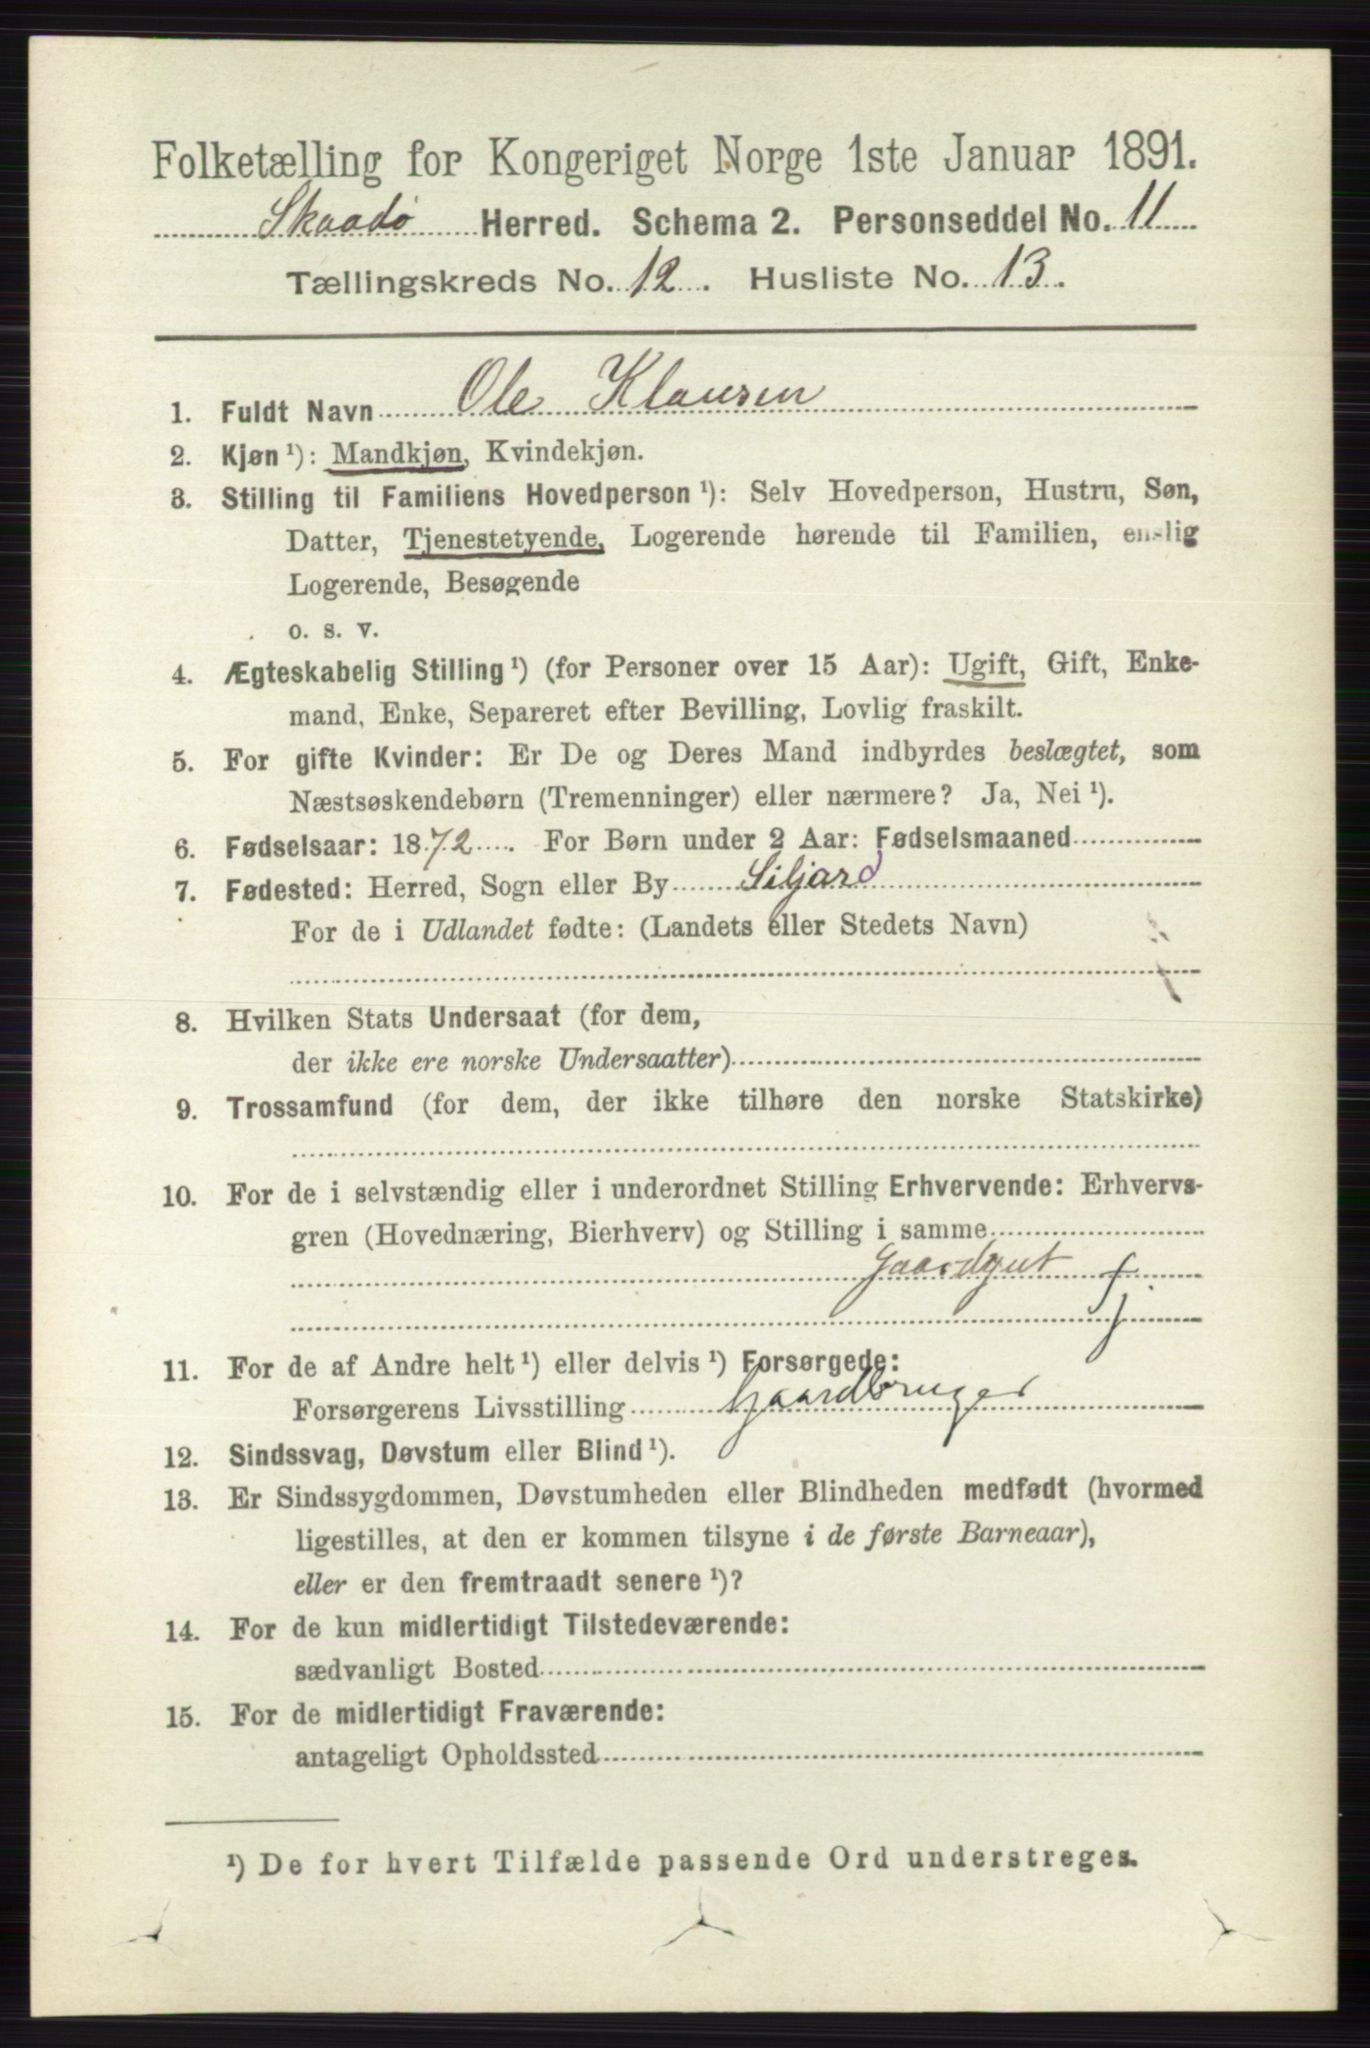 Folketælling for Kongeriget Norge 1ste Januar 1891.
Skaadø Herred. Schema 2. Personseddel No. 11
Tællingskreds No. 12. Husliste No. 13.
1. Fuldt Navn Ole Klausen
2. Kjøn ¹): Mandkjøn, Kvindekjøn.
3. Stilling til Familiens Hovedperson ¹): Selv Hovedperson, Hustru, Søn,
Datter, Tjenestetyende, Logerende hørende til Familien, enslig
Logerende, Besøgende
o. s. v.
4. Ægteskabelig Stilling ¹) (for Personer over 15 Aar): Ugift, Gift, Enke-
mand, Enke, Separeret efter Bevilling, Lovlig fraskilt.
5. For gifte Kvinder: Er De og Deres Mand indbyrdes beslægtet, som
Næstsøskendebørn (Tremenninger) eller nærmere? Ja, Nei ¹).
6. Fødselsaar: 1872. For Børn under 2 Aar: Fødselsmaaned
7. Fødested: Herred, Sogn eller By Siljord
For de i Udlandet fødte: (Landets eller Stedets Navn)
8. Hvilken Stats Undersaat (for dem,
der ikke ere norske Undersaatter)
9. Trossamfund (for dem, der ikke tilhøre den norske Statskirke)
10. For de i selvstændig eller i underordnet Stilling Erhvervende: Erhvervs-
gren (Hovednæring, Bierhverv) og Stilling i samme
Gaardgut f
j
11. For de af Andre helt ¹) eller delvis ¹) Forsørgede:
Forsørgerens Livsstilling Gaardbruger
12. Sindssvag, Døvstum eller Blind ¹).
13. Er Sindssygdommen, Døvstumheden eller Blindheden medfødt (hvormed
ligestilles, at den er kommen tilsyne i de første Barneaar),
eller er den fremtraadt senere ¹)?
14. For de kun midlertidigt Tilstedeværende:
sædvanligt Bosted
15. For de midlertidigt Fraværende:
antageligt Opholdssted
¹) De for hvert Tilfælde passende Ord understreges.